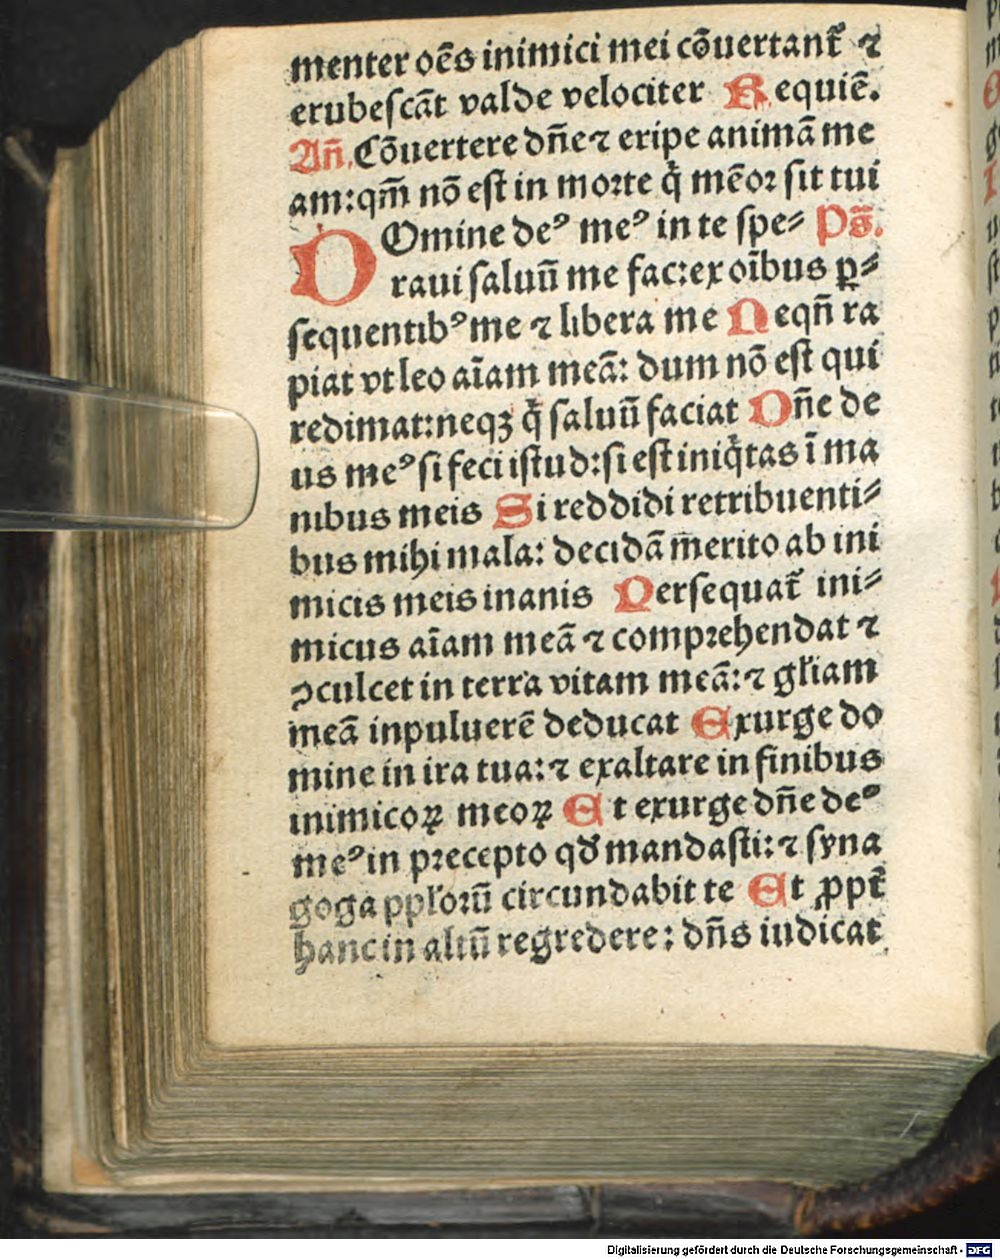 menter oēs inimici mei cōuertant᷑ ⁊
erubeſcāt valde velociter Requiē.
Añ. Cōuertere dñe ⁊ eripe animā me
am: qm̄ nō eſt in moꝛte q̇ mēoꝛ ſit tui
DOmine deꝰ meꝰ in te ſpe⸗ Ps̄.
raui ſaluū me fac: ex oībus ꝑ⸗
ſequentibꝰ me ⁊ libera me Neqñ ra
piat vt leo aīam meā: dum nō eſt qui
redimat: neqꝫ q̇ ſaluū faciat Dñe de
us meꝰ ſi feci iſtud: ſi eſt iniq̇tas ī ma
nibus meis Si reddidi retribuenti⸗
bus mihi mala: decidā merito ab ini
micis meis inanis Perſequat᷑ ini⸗
micus aīam meā ⁊ compꝛehendat ⁊
ꝯculcet in terra vitam meā: ⁊ gl̄iam
meā in puluerē deducat Exurge do
mine in ira tua: ⁊ exaltare in finibus
inimicoꝝ meoꝝ Et exurge dñe deꝰ
meꝰ in pꝛecepto qđ mandaſti: ⁊ ſyna
goga ppl̄oꝛū circundabit te Et ꝓpt᷑
hanc in altū regredere: dñs iudicat
Digitalisierung gefördert durch die Deutsche Forschungsgemeinschaft - DFG